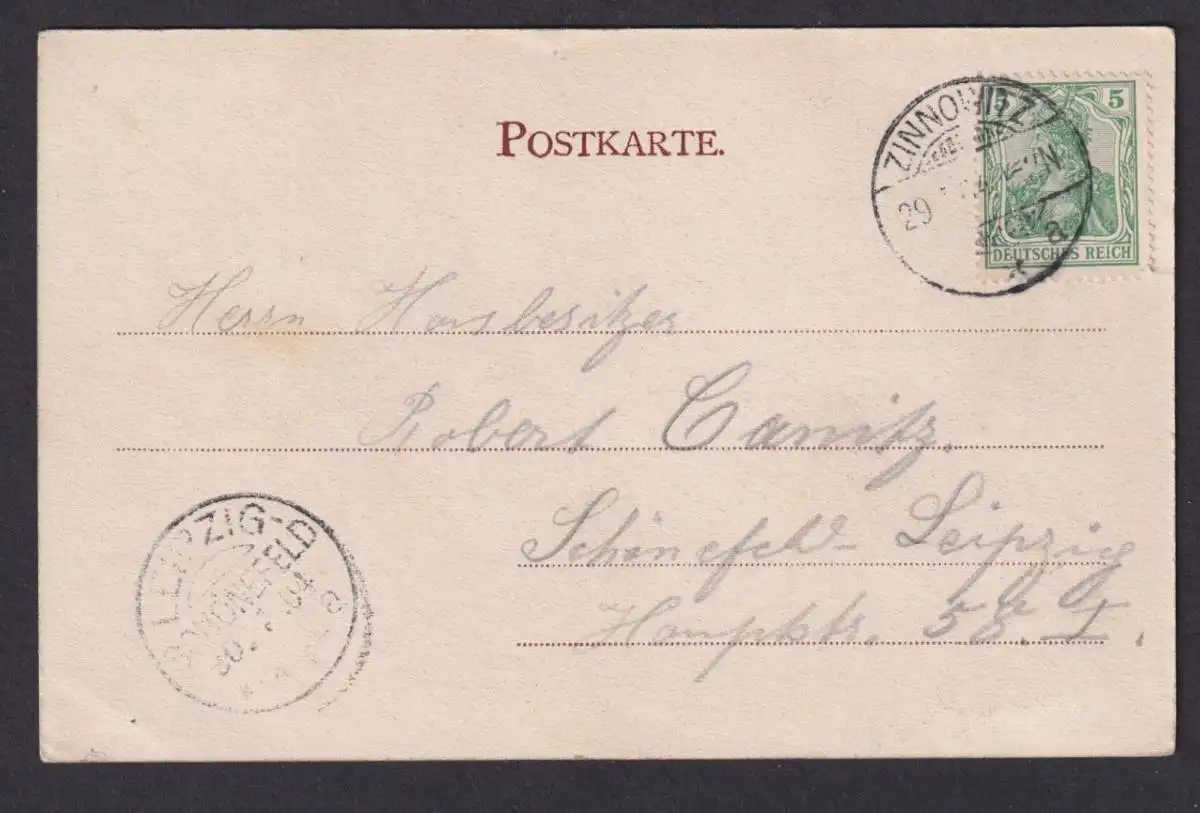 POSTKARTE.
ZINNOWITZ
29
a
5
DEUTSCHES REICH
Herrn Hausbesitzer
Robert Canitz.
Schönefeld Leipzig
Hauptstr. 58. I.
LEIPZIG-
SCHÖNEFELD
30.